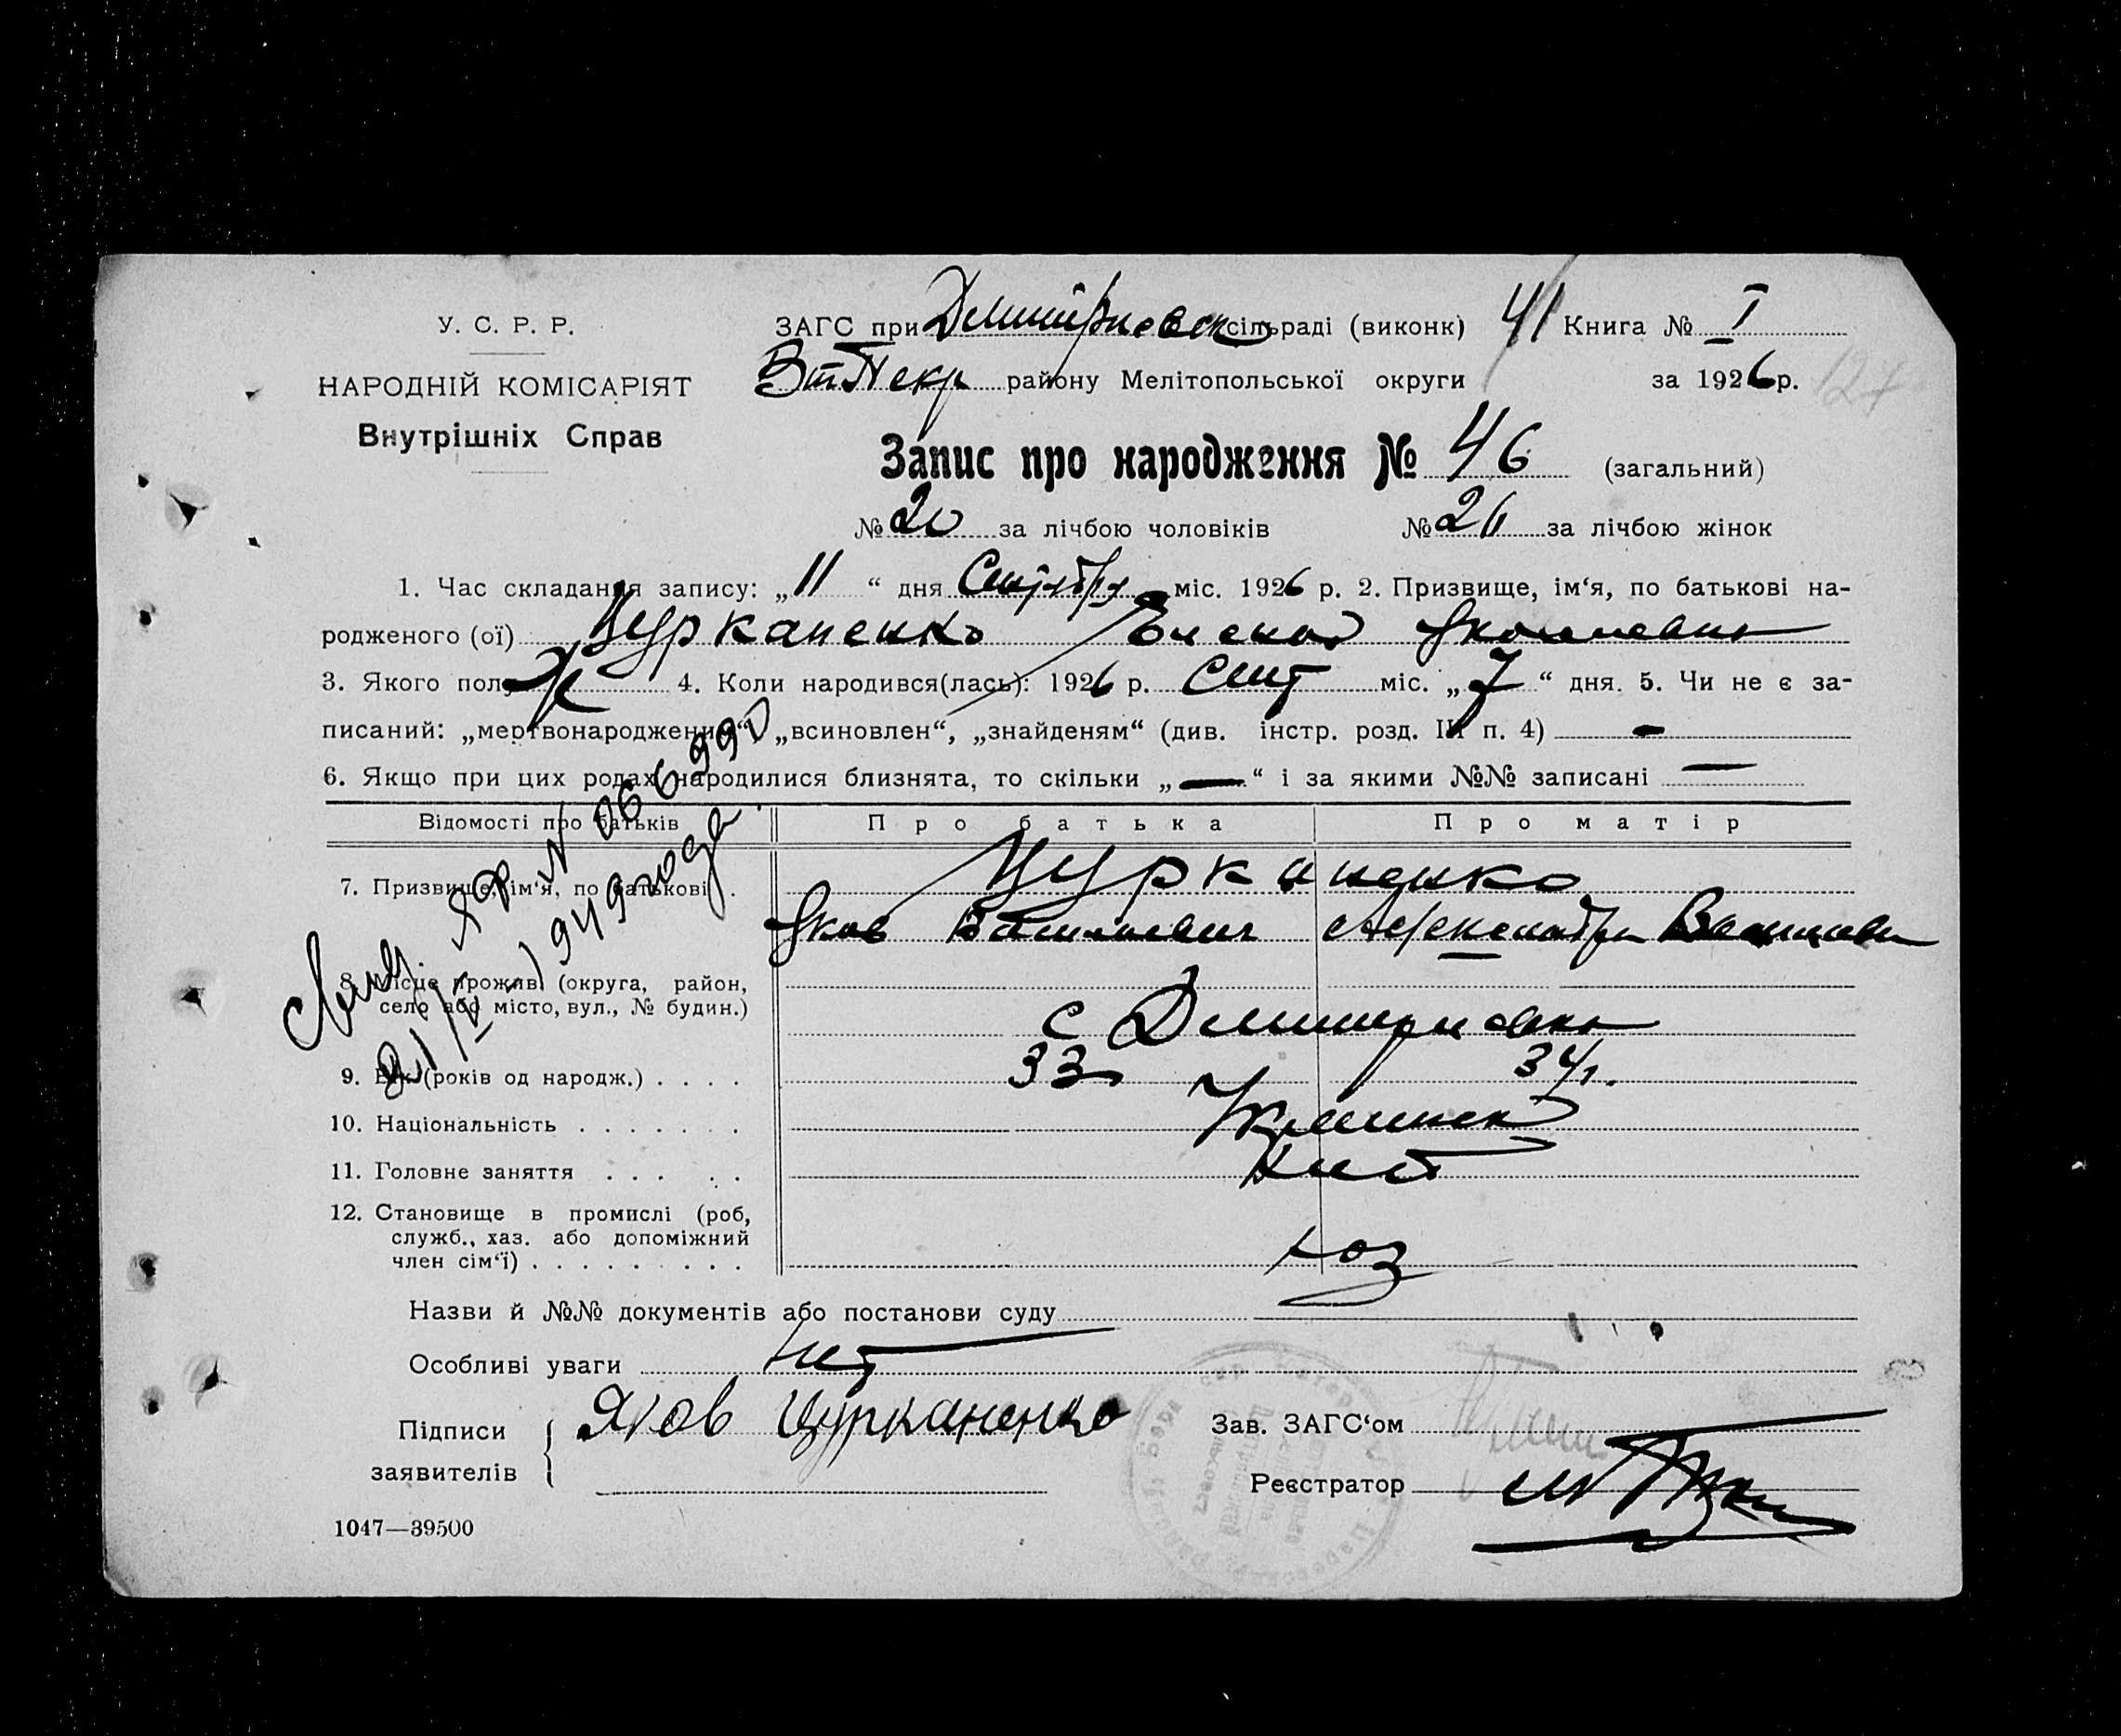 У. С. Р. Р.
НАРОДНІЙ КОМІСАРІЯТ
Внутрішніх Справ
ЗАГС при Дмитриевск сільраді (виконк) 41 Книга № I
району Мелітопольської округи за 1926 р. 127
Запис про народження № 46 (загальний)
№ 20 за лічбою чоловіків № 26 за лічбою жінок
1. Час складання запису: „11“ дня Сентября міс. 1926 р. 2. Призвище, ім‘я, по батькові на-
родженого (ої) Цурканенко Елена Яковлевна
3. Якого полу ж 4. Коли народився(лась): 1926 р. Сент міс. „7“ дня. 5. Чи не є за-
писаний: „мертвонароджений“, „всиновлен“, „знайденям“ (див. інстр. розд. III п. 4) —
6. Якщо при цих родах народилися близнята, то скільки „—“ і за якими №№ записані —
Відомості про батьків Про батька Про матір
7. Призвище, ім‘я, по батькові . Цурканенко
Яков Васильевич Александра
8. Місце прожив. (округа, район,
село або місто, вул., № будин.) с Дмитриевка
9. Вік (років од народж.) . . . . 33 34 г.
10. Національність . . . . . . .
11. Головне заняття . . . . .
12. Становище в промислі (роб,
служб., хаз. або допоміжний
член сім‘ї) . . . . . . . . . хоз
№ 066990
1949 года
Назви й №№ документів або постанови суду
Особливі уваги нет
Підписи
заявителів
Яков Цурканенко
Зав. ЗАГС‘ом
Реєстратор
1047—39500